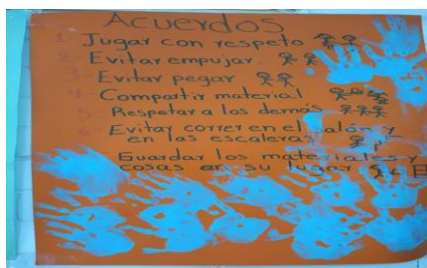 Acuerdos
1- Jugar con respeto
2- Evitar empujar.
3- Evitar pegar
4- Compartir material
5- Respetar a los demás
6- Evitar correr en el salón y
en las escaleras
Guardar los materiales y
cosas en su lugar